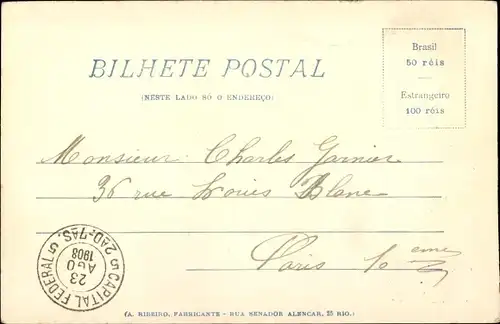 BILHETE POSTAL
(NESTE LADO SÓ O ENDEREÇO)
Brasil
50 réis
Estrangeiro
100 réis
Monsieur Charles Garnier
36 rue Louis Blanc
Paris 10 eme
CAPITAL FEDERAL 5
23
AGO
1908
(A. RIBEIRO, FABRICANTE – RUA SENADOR ALENCAR, 25 RIO.)